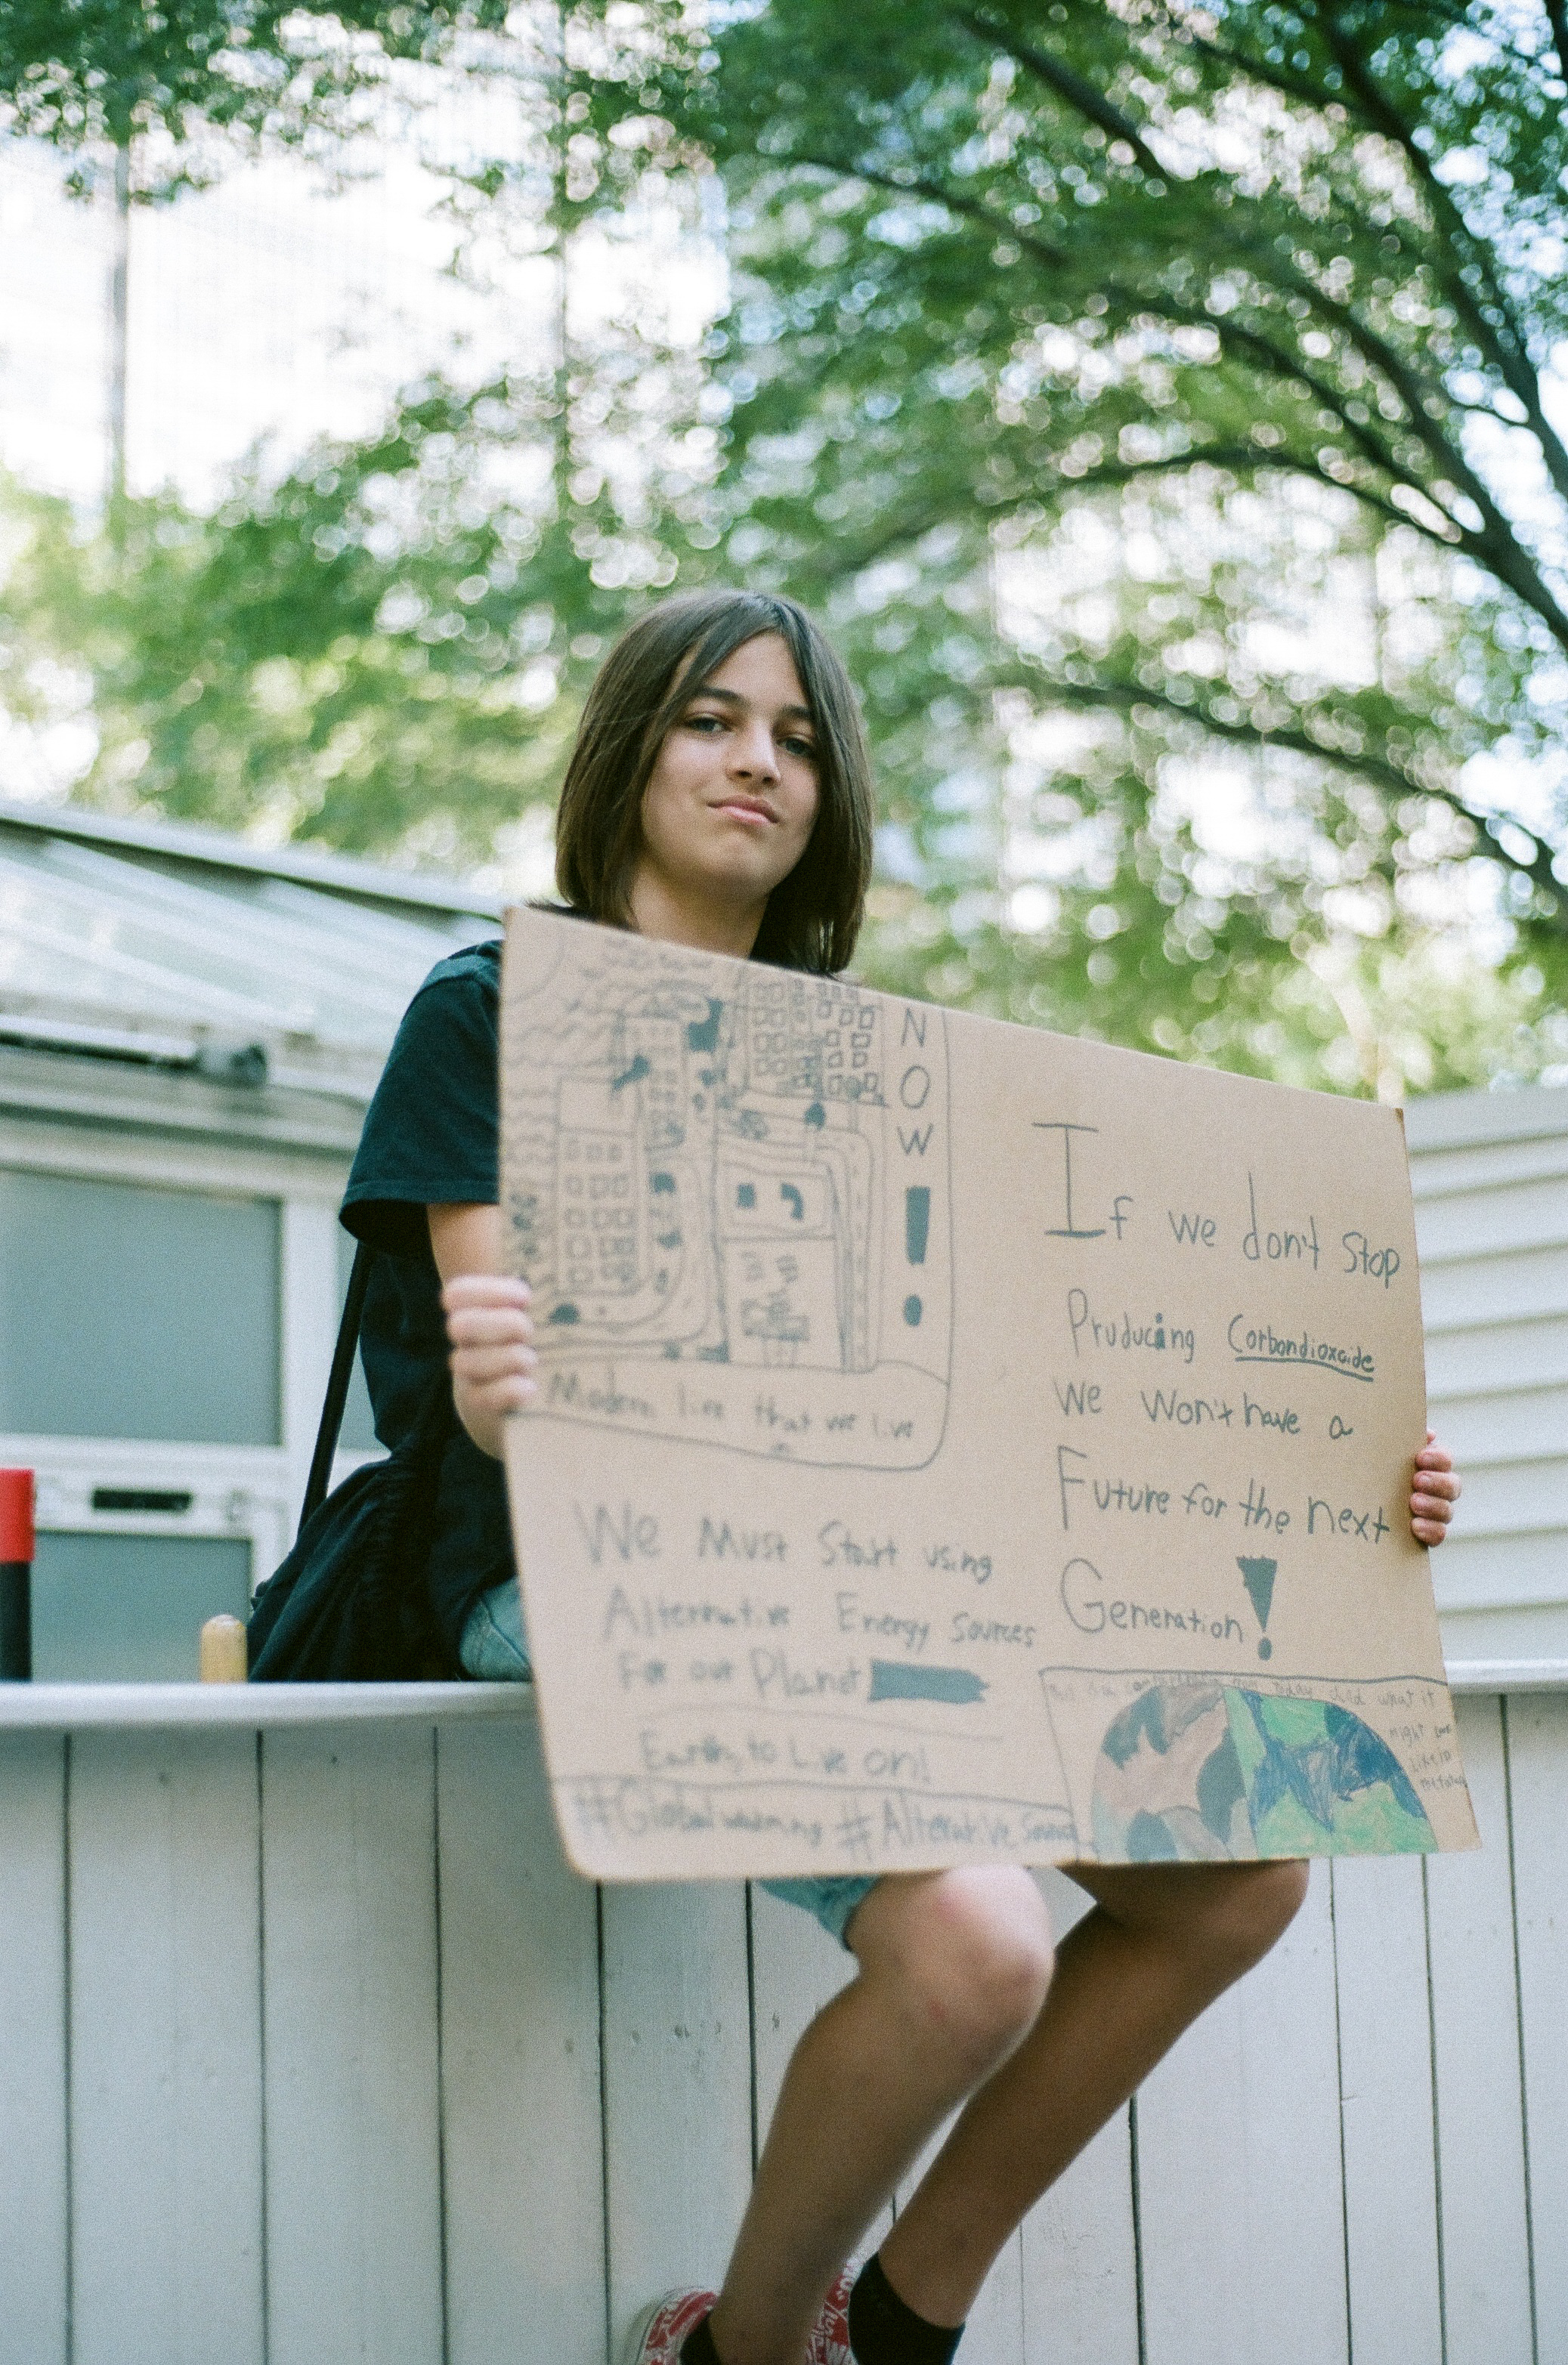 NOW!
Modern live that we live
in
We Must Start using
Alternative Energy Sources
For our Planet
Earth to Live on!
#Globalwarming #Alternative
If we don't Stop
Pruducing Corbondioxcide
we Won't have a
Future for the next
Generation!
today and what it
might look
like in